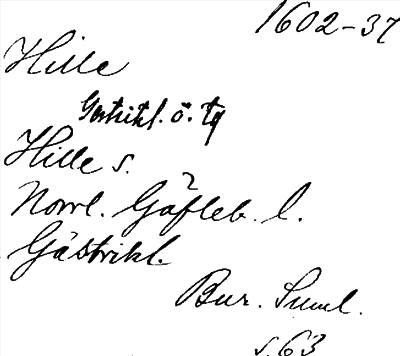 1602-37
Hille
Gestrikl. ö. tg
Hille s.
Norrl. Gäfleb. l.
Gästrikl.
Bur. Suml.
s. 63